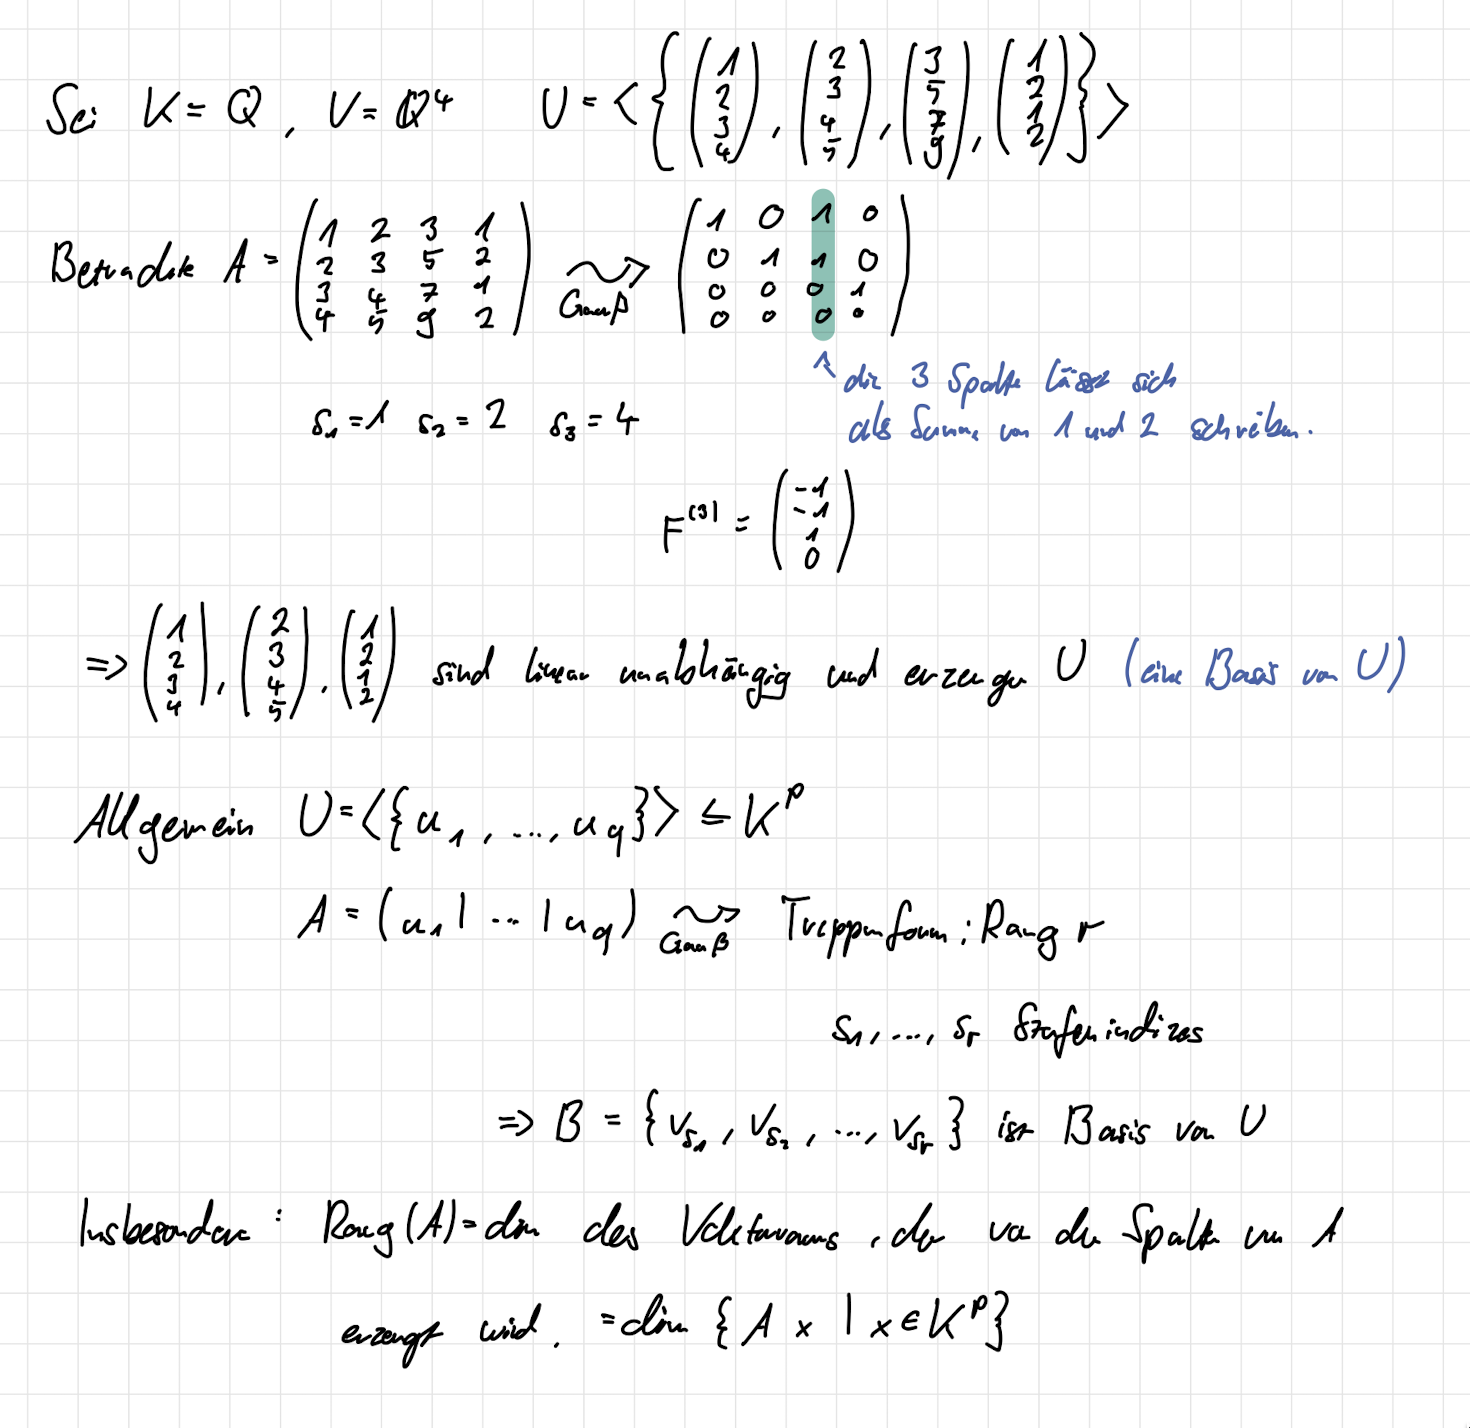 Sei K = Q, V = Q⁴ U = ⟨{(1 2 3 4), (2 3 4 5), (3 5 7 9), (1 2 1 2)}⟩
Betrachte A = (1 2 3 1; 2 3 5 2; 3 4 7 1; 4 5 9 2) ⇝ Gauß (1 0 1 0; 0 1 1 0; 0 0 0 1; 0 0 0 0)
↑ die 3 Spalte lässt sich
s₁ = 1 s₂ = 2 s₃ = 4
als Summe von 1 und 2 schreiben.
F⁽³⁾ = (-1 -1 1 0)
=> (1 2 3 4), (2 3 4 5), (1 2 1 2) sind linear unabhängig und erzeugen U (eine Basis von U)
Allgemein U = ⟨{u₁, ..., u_q}⟩ ≤ K^p
A = (u₁ | ... | u_q) ⇝ Gauß Treppenform: Rang r
s₁, ..., s_r Stufenindizes
=> B = {v_{s₁}, v_{s₂}, ..., v_{s_r}} ist Basis von U
Insbesondere: Rang(A) = dim des Vektorraums, der von den Spalten von A
erzeugt wird. = dim {A x | x ∈ K^p}